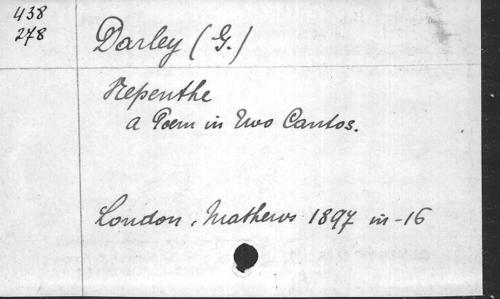 438
278
Darley (G.)
Nepenthe
a Poem in two Cantos.
London, Mathews 1897 in-16